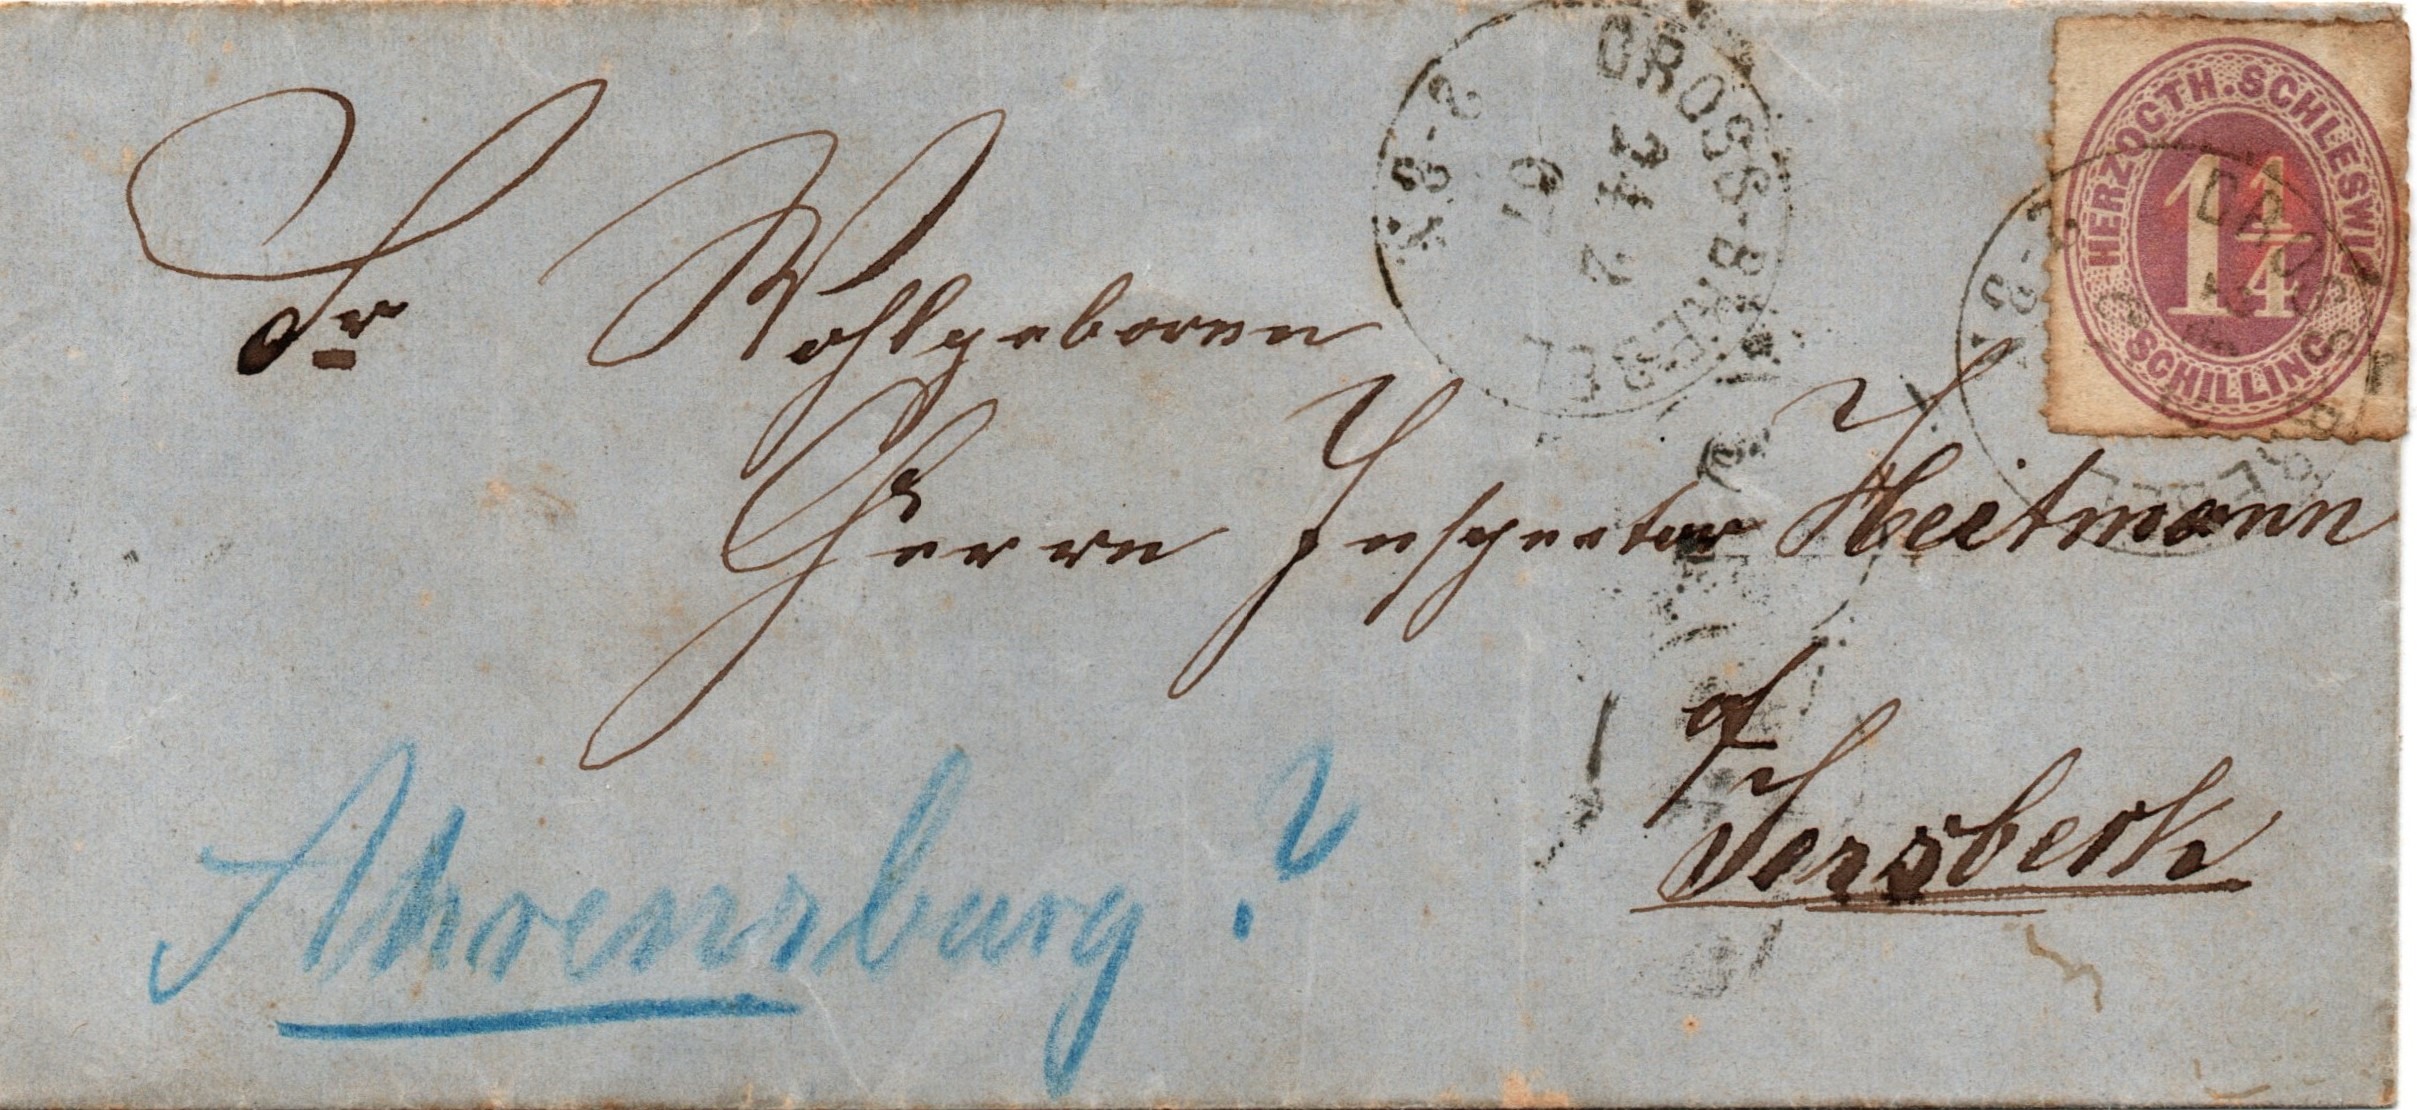 HERZOGTH. SCHLESWIG
1¼
SCHILLING
GROSS-BREBEL
3 4 2
Sr Wohlgeboren
Herrn Inspector Heitmann
Jersbeck
Ahrensburg ?